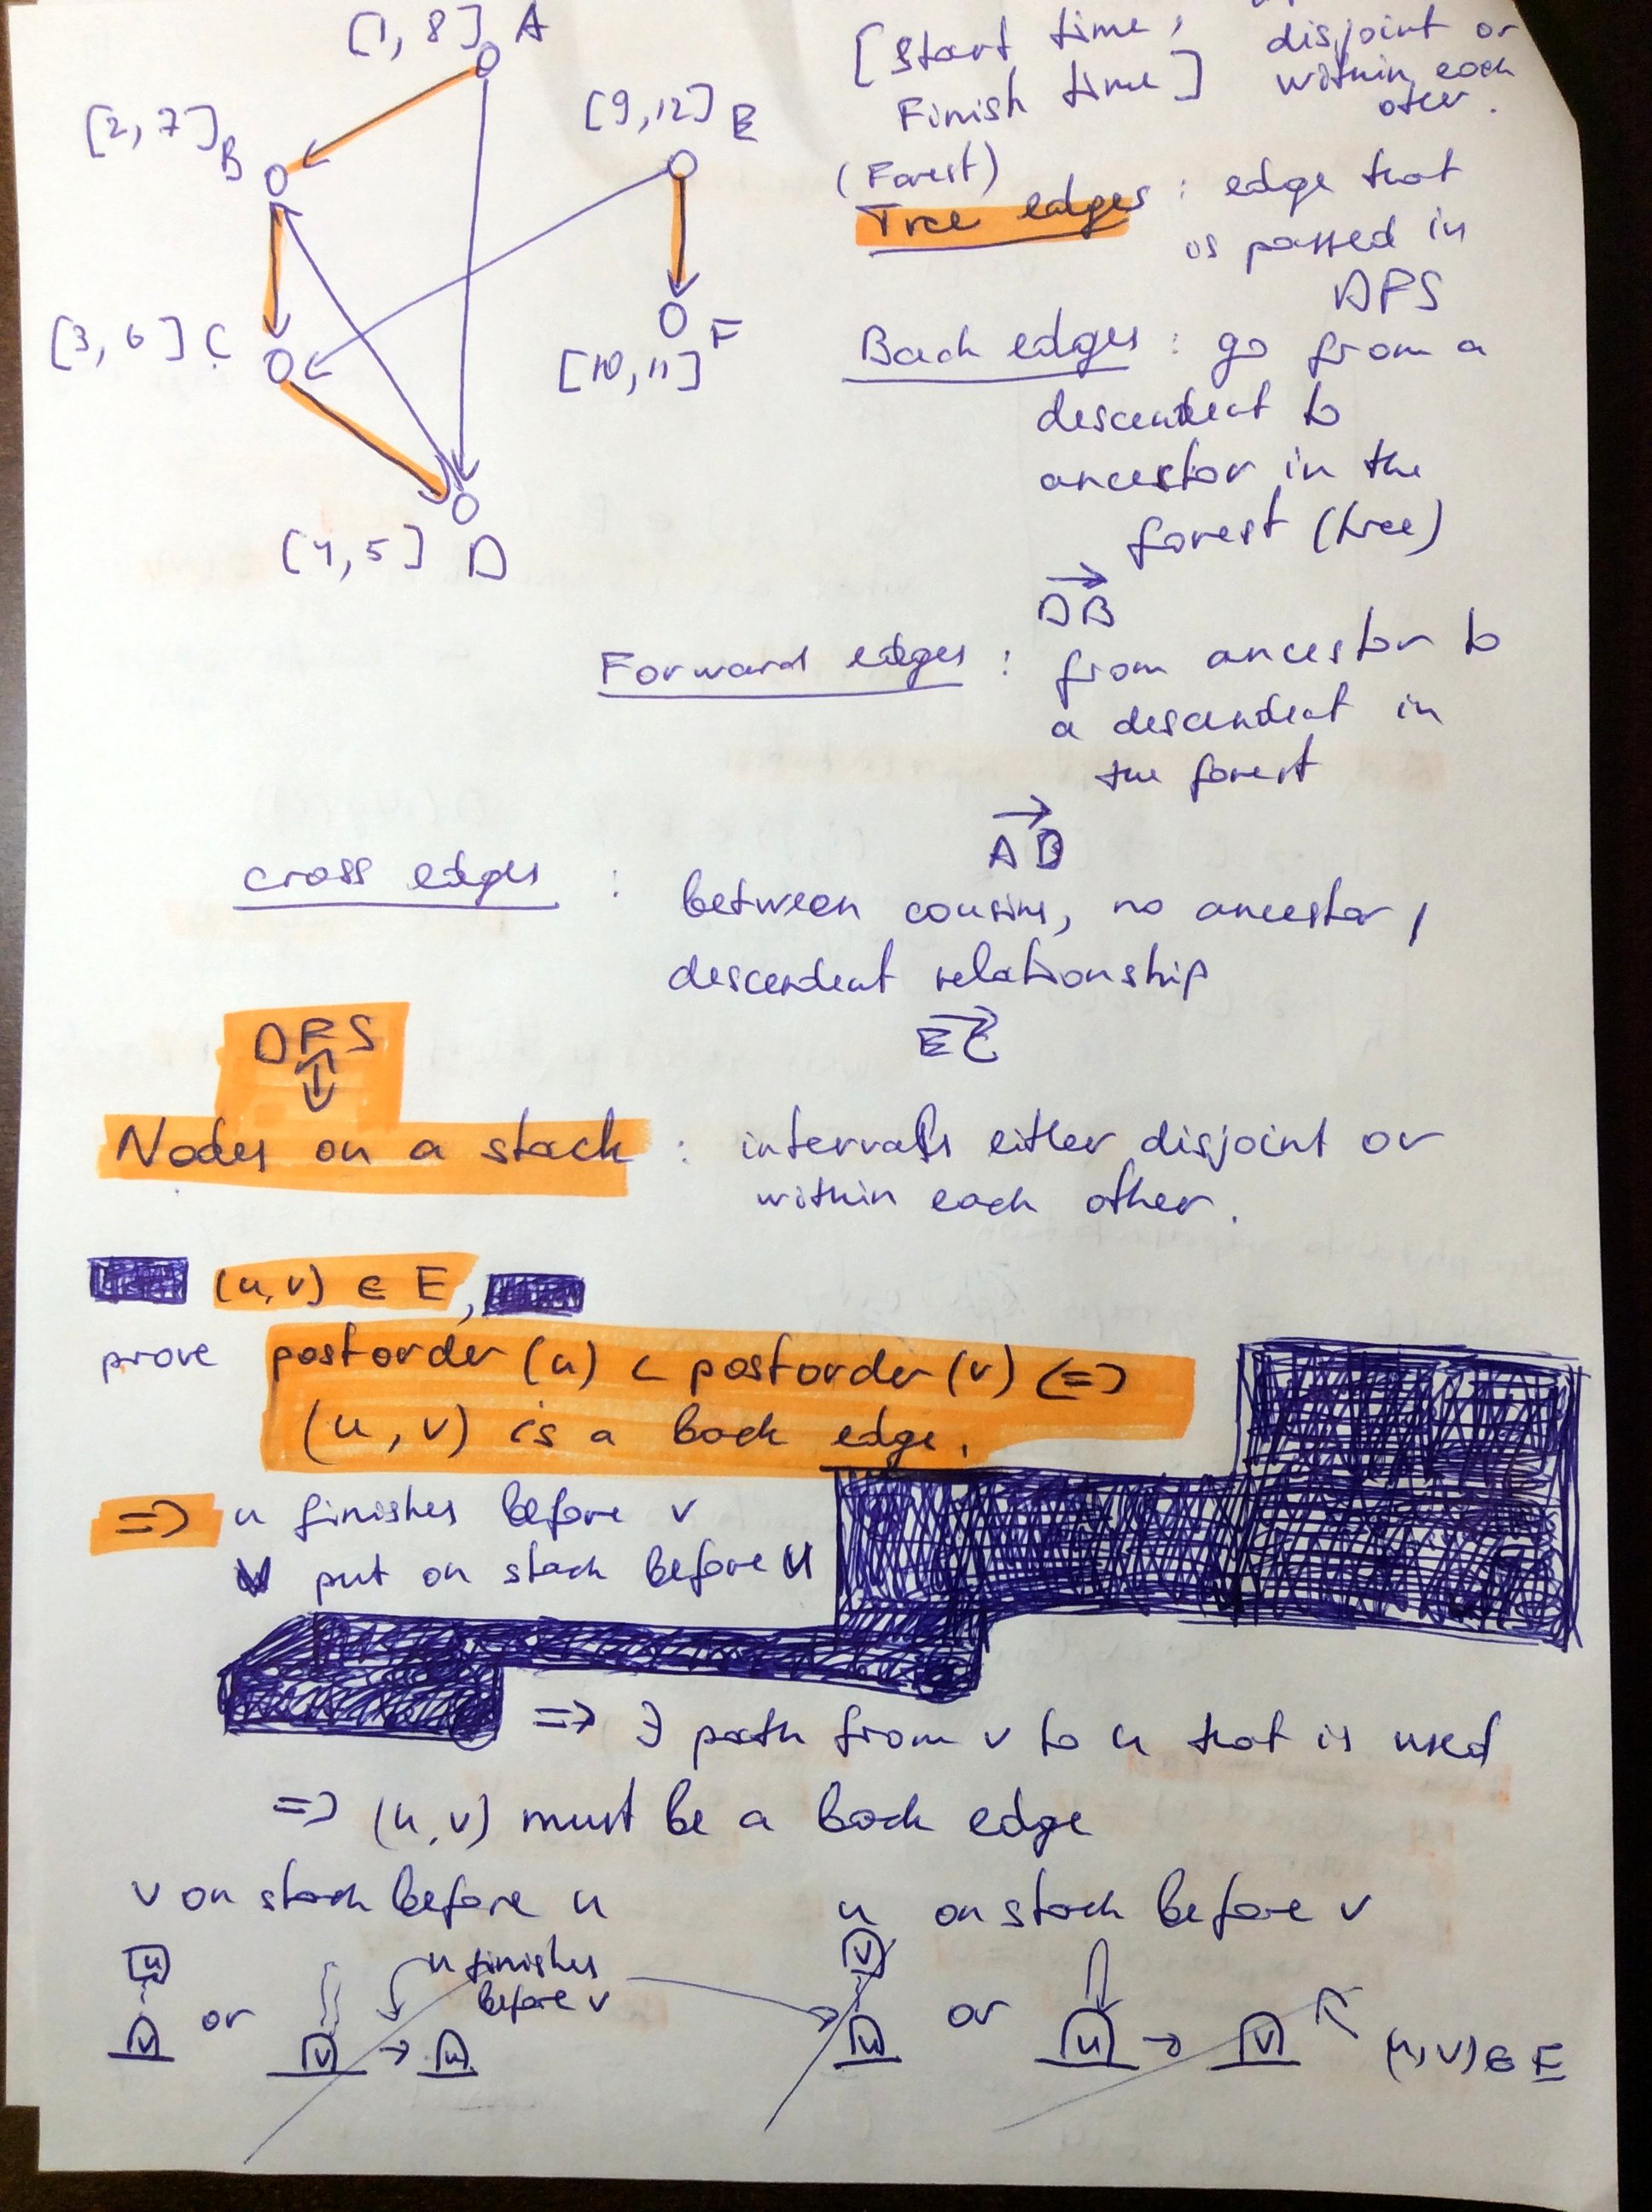 [1, 8] A
[2, 7] B
[9,12] E
[3, 6] C
F
[10,11]
[4, 5] D
[Start time, disjoint or
Finish time] within each
other.
(Forest)
Tree edges : edge that
is passed in
DFS
Back edges : go from a
descendent to
ancestor in the
forest (tree)
DB
Forward edges : from ancestor to
a descendent in
the forest
AD
cross edges : between cousins, no ancestor,
descendent relationship
EC
DFS
Nodes on a stack : intervals either disjoint or
within each other.
(u,v) ∈ E,
prove postorder (u) < postorder (v) <=>
(u, v) is a back edge.
=> u finishes before v
v put on stack before u
=> ∃ path from v to u that is used
=> (u,v) must be a back edge
v on stack before u
u on stack before v
u
v or v → u
u finishes
before v
v
u or u → v (u,v) ∈ E